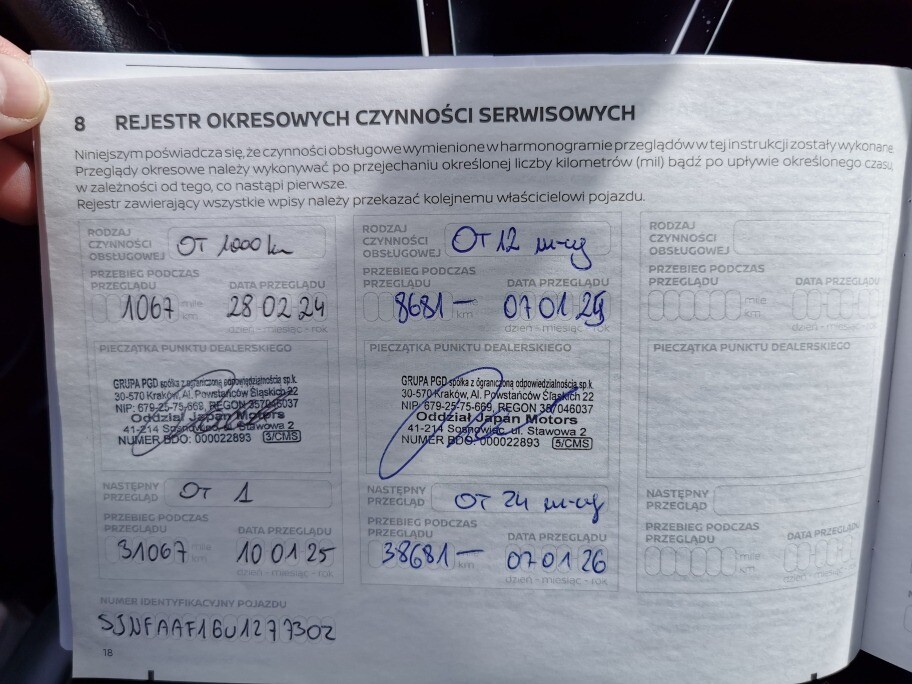 8 REJESTR OKRESOWYCH CZYNNOŚCI SERWISOWYCH
Niniejszym poświadcza się, że czynności obsługowe wymienione w harmonogramie przeglądów w tej instrukcji zostały wykonane.
Przeglądy okresowe należy wykonywać po przejechaniu określonej liczby kilometrów (mil) bądź po upływie określonego czasu,
w zależności od tego, co nastąpi pierwsze.
Rejestr zawierający wszystkie wpisy należy przekazać kolejnemu właścicielowi pojazdu.
RODZAJ CZYNNOŚCI OBSŁUGOWEJ OT 1000 km
PRZEBIEG PODCZAS PRZEGLĄDU DATA PRZEGLĄDU
1067 mile km 28 02 24
dzień - miesiąc - rok
PIECZĄTKA PUNKTU DEALERSKIEGO
GRUPA PGD spółka z ograniczoną odpowiedzialnością sp.k.
30-570 Kraków, Al. Powstańców Śląskich 22
NIP: 679-25-75-669, REGON 357046037
Oddział Japan Motors
41-214 Sosnowiec, ul. Stawowa 2
NUMER BDO: 000022893 5/CMS
NASTĘPNY PRZEGLĄD OT 1
PRZEBIEG PODCZAS PRZEGLĄDU DATA PRZEGLĄDU
31067 mile km 10 01 25
dzień - miesiąc - rok
RODZAJ CZYNNOŚCI OBSŁUGOWEJ OT 12 m-cy
PRZEBIEG PODCZAS PRZEGLĄDU DATA PRZEGLĄDU
8681 — km 07 01 25
dzień - miesiąc - rok
PIECZĄTKA PUNKTU DEALERSKIEGO
GRUPA PGD spółka z ograniczoną odpowiedzialnością sp.k.
30-570 Kraków, Al. Powstańców Śląskich 22
NIP: 679-25-75-669, REGON 357046037
Oddział Japan Motors
41-214 Sosnowiec, ul. Stawowa 2
NUMER BDO: 000022893 5/CMS
NASTĘPNY PRZEGLĄD OT 24 m-cy
PRZEBIEG PODCZAS PRZEGLĄDU DATA PRZEGLĄDU
38681 — km 07 01 26
dzień - miesiąc - rok
RODZAJ CZYNNOŚCI OBSŁUGOWEJ
PRZEBIEG PODCZAS PRZEGLĄDU DATA PRZEGLĄDU
mile km
dzień - miesiąc - rok
PIECZĄTKA PUNKTU DEALERSKIEGO
NASTĘPNY PRZEGLĄD
PRZEBIEG PODCZAS PRZEGLĄDU DATA PRZEGLĄDU
mile km
dzień - miesiąc - rok
NUMER IDENTYFIKACYJNY POJAZDU
SJNFAAF16U1277302
18